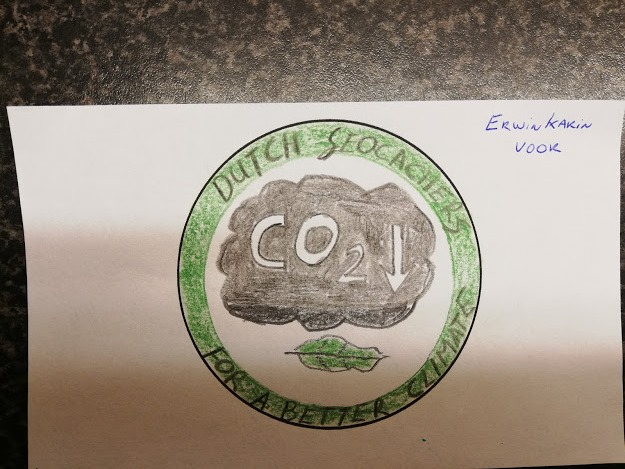 ERWINKARIN
VOOR
DUTCH GEOCACHERS
CO2↓
FOR A BETTER CLIMATE